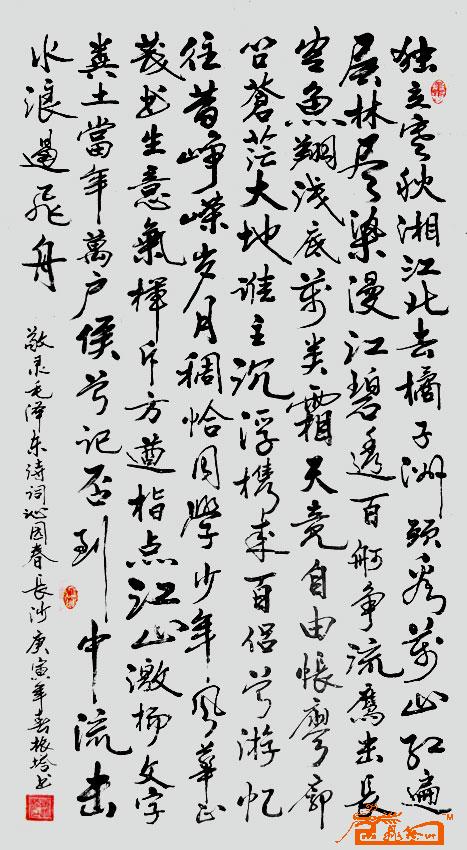 独立寒秋湘江北去橘子洲頭看萬山红遍
层林尽染漫江碧透百舸争流鹰击長
空魚翔浅底萬类霜天竞自由悵寥廓
问蒼茫大地谁主沉浮携来百侣曾游忆
往昔峥嵘岁月稠恰同學少年风華正
茂书生意氣揮斥方遒指点江山激扬文字
糞土當年萬户侯曾记否到中流击
水浪遏飞舟
敬录毛泽东诗词沁园春長沙庚寅年春书